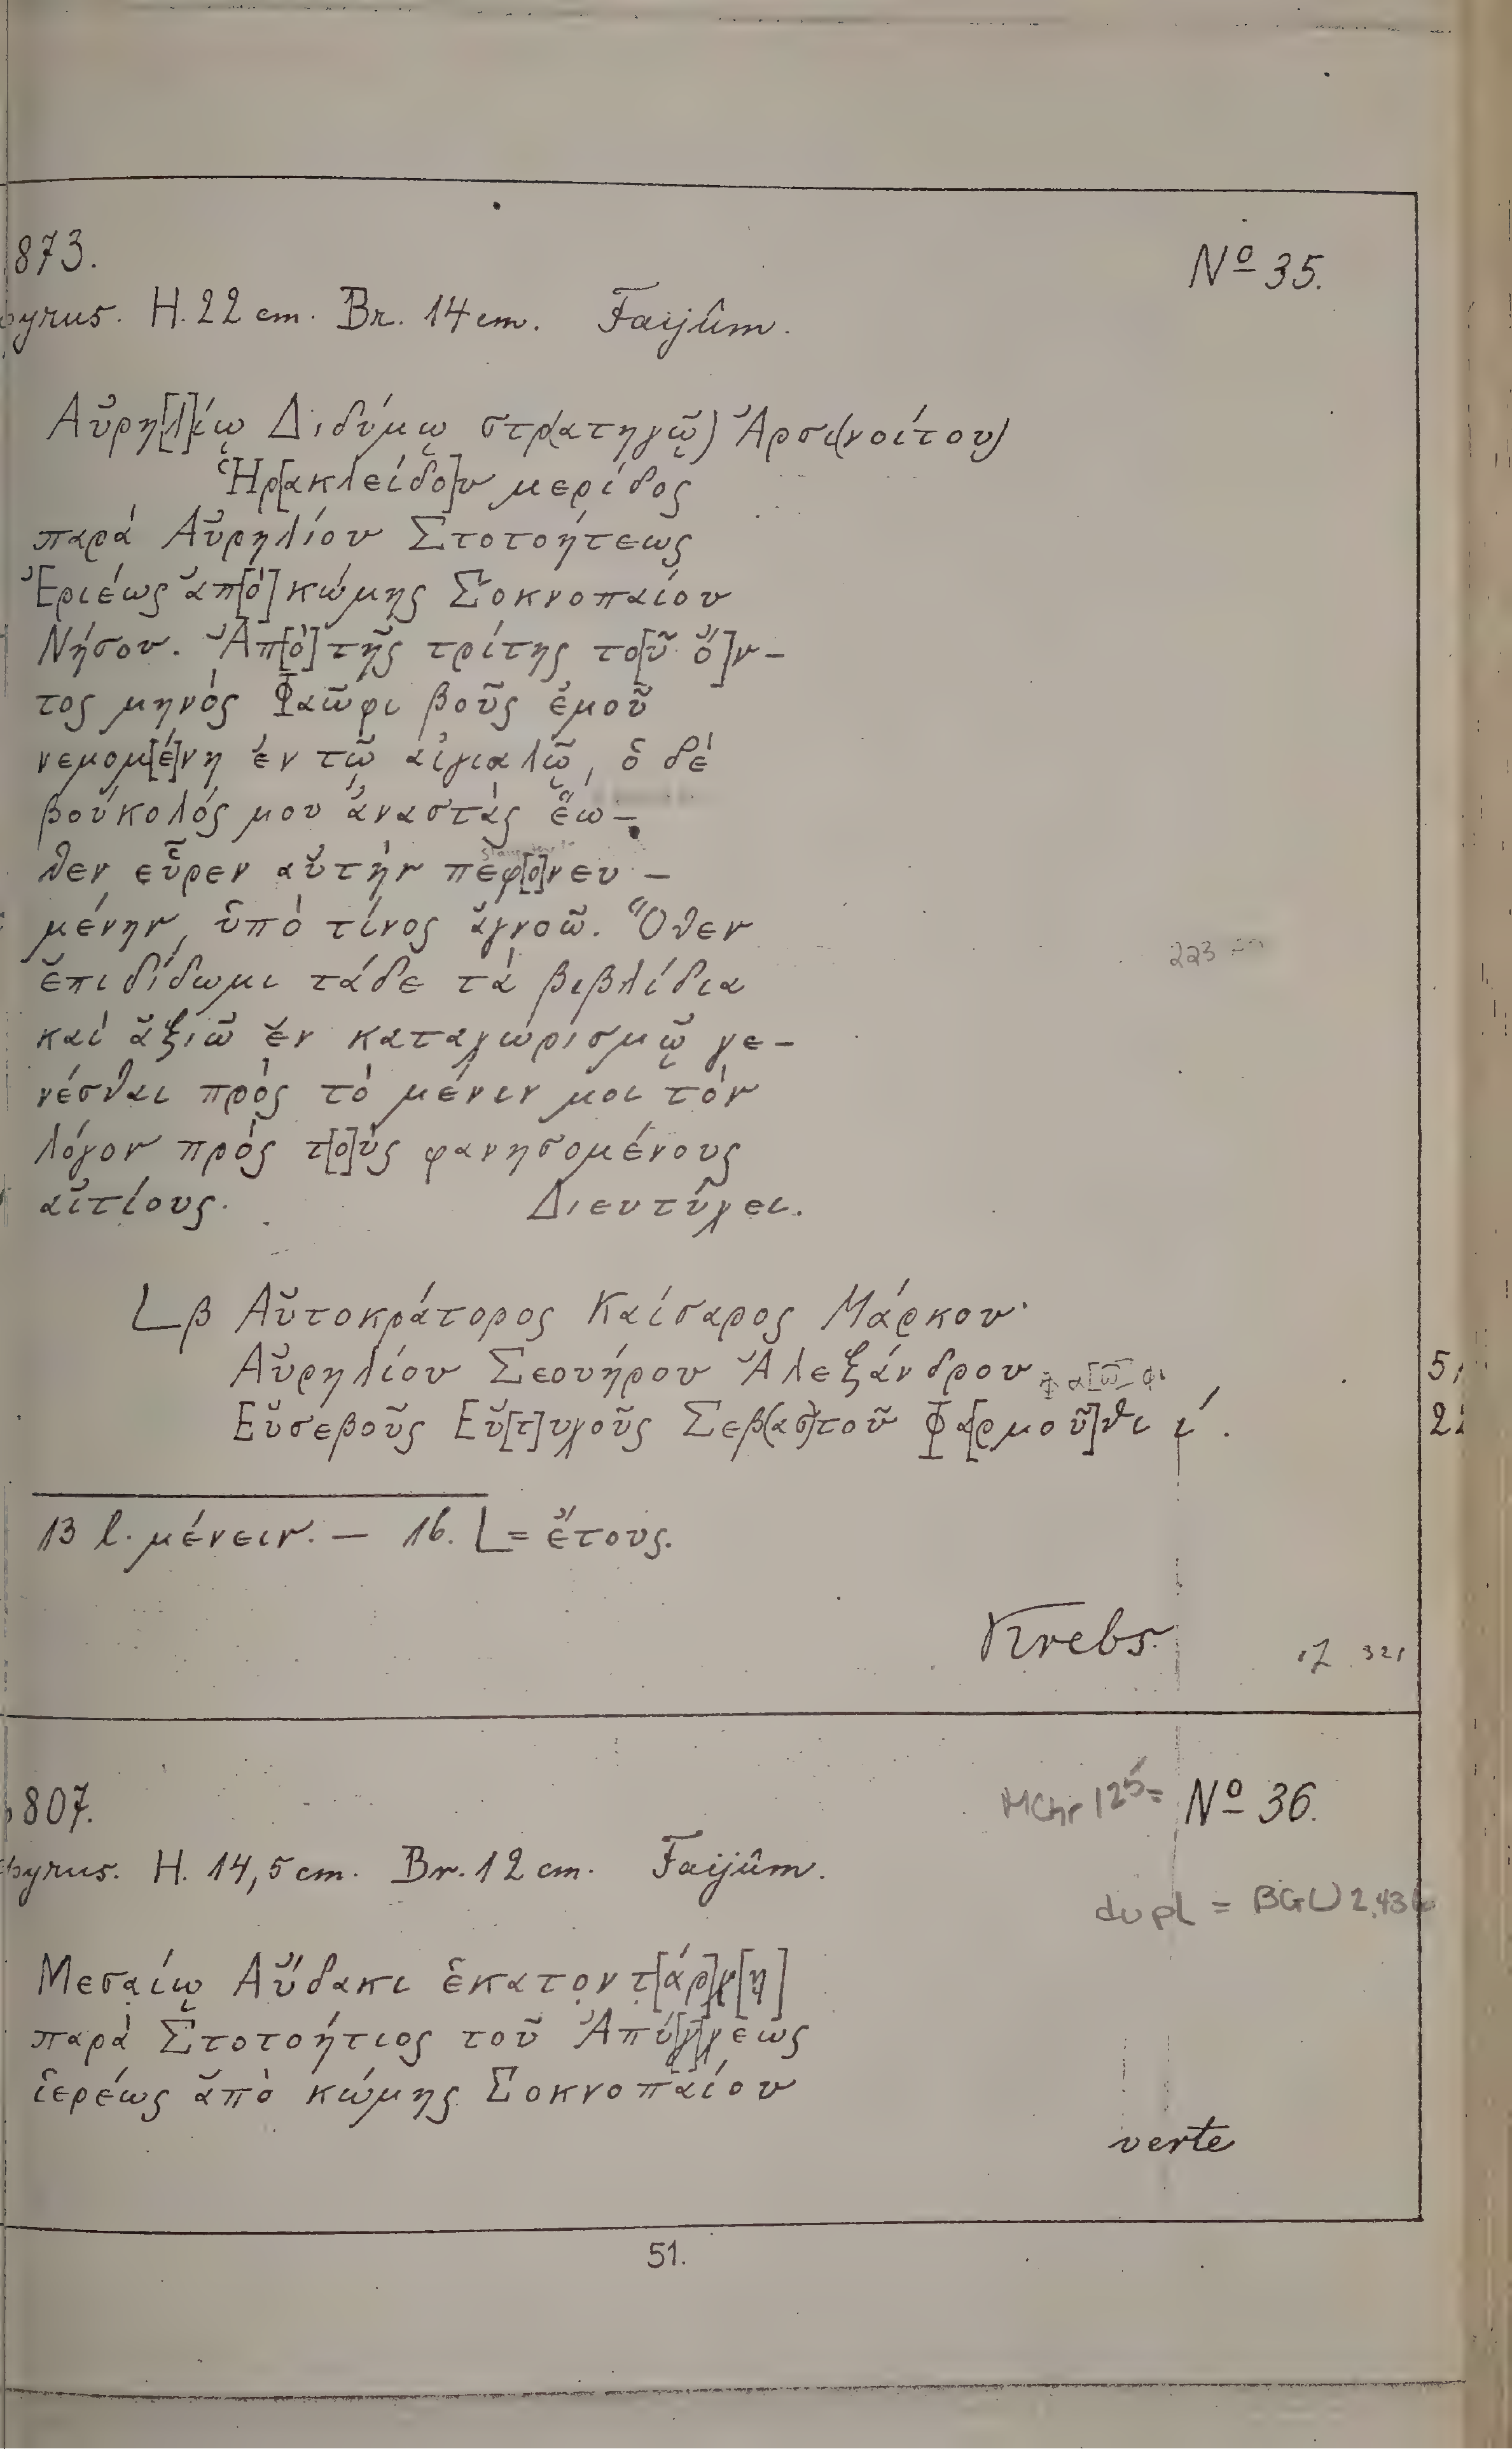 873.
No 35.
pyrus. H. 22 cm. Br. 14 cm. Faijûm.
Αὐρη[λ]ίῳ Διδύμῳ στρ(ατηγῷ) Ἀρσι(νοίτου)
Ἡρ[ακλείδο]υ μερίδος
παρὰ Αὐρηλίου Στοτοήτεως
Ἐριέως ἀπ[ὸ] κώμης Σοκνοπαίου
Νήσου. Ἀπ[ὸ] τῆς τρίτης το[ῦ ὄ]ν-
τος μηνὸς Φαῶφι βοῦς ἐμοῦ
νεμομ[έ]νη ἐν τῷ αἰγιαλῷ, ὁ δὲ
βουκολός μου ἀναστὰς ἕω-
θεν εὗρεν αὐτὴν πεφ[ο]νευ-
μένην, ὑπὸ τίνος ἀγνοῶ. Ὅθεν
ἐπιδίδωμι τάδε τὰ βιβλίδια
223
καὶ ἀξιῶ ἐν καταχωρισμῷ γε-
νέσθαι πρὸς τὸ μένιν μοι τὸν
λόγον πρὸς τ[ο]ὺς φανησομένους
αἰτίους. Διευτύχει.
L β Αὐτοκράτορος Καίσαρος Μάρκου
Αὐρηλίου Σεουήρου Ἀλεξάνδρου
Φα[ῶ]φι
Εὐσεβοῦς Εὐ[τ]υχοῦς Σεβ(ασ)τοῦ Φα[ρμοῦ]θι ί.
13 l. μένειν. — 16. L = ἔτους.
Krebs.
cf 321
807.
MChr 125 = No 36.
pyrus. H. 14,5 cm. Br. 12 cm. Faijûm.
dupl = BGU 2.436
Μεσαίῳ Αὔδακι ἑκατοντ[άρ]χ[ῃ]
παρὰ Στοτοήτιος τοῦ Ἀπύ[γ]χεως
ἱερέως ἀπὸ κώμης Σοκνοπαίου
verte
51.